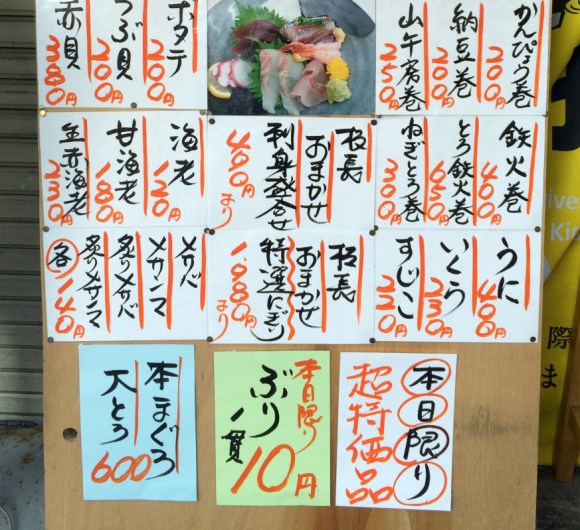 かんぴょう巻
200円
納豆巻
200円
山午蒡巻
250円
ホタテ
200円
つぶ貝
200円
赤貝
380円
鉄火巻
400円
とろ鉄火巻
650円
ねぎとろ巻
300円
板長
おまかせ
刺身盛合せ
400円より
海老
120円
甘海老
180円
生赤海老
230円
うに
400円
いくら
230円
すじこ
220円
板長
おまかせ
特選にぎり
1,080円より
〆サバ
〆サンマ
炙り〆サバ
炙り〆サンマ
各140円
本日限り
超特価品
本日限り
ぶり
1貫
10円
本まぐろ
大とろ
600円
際
ま